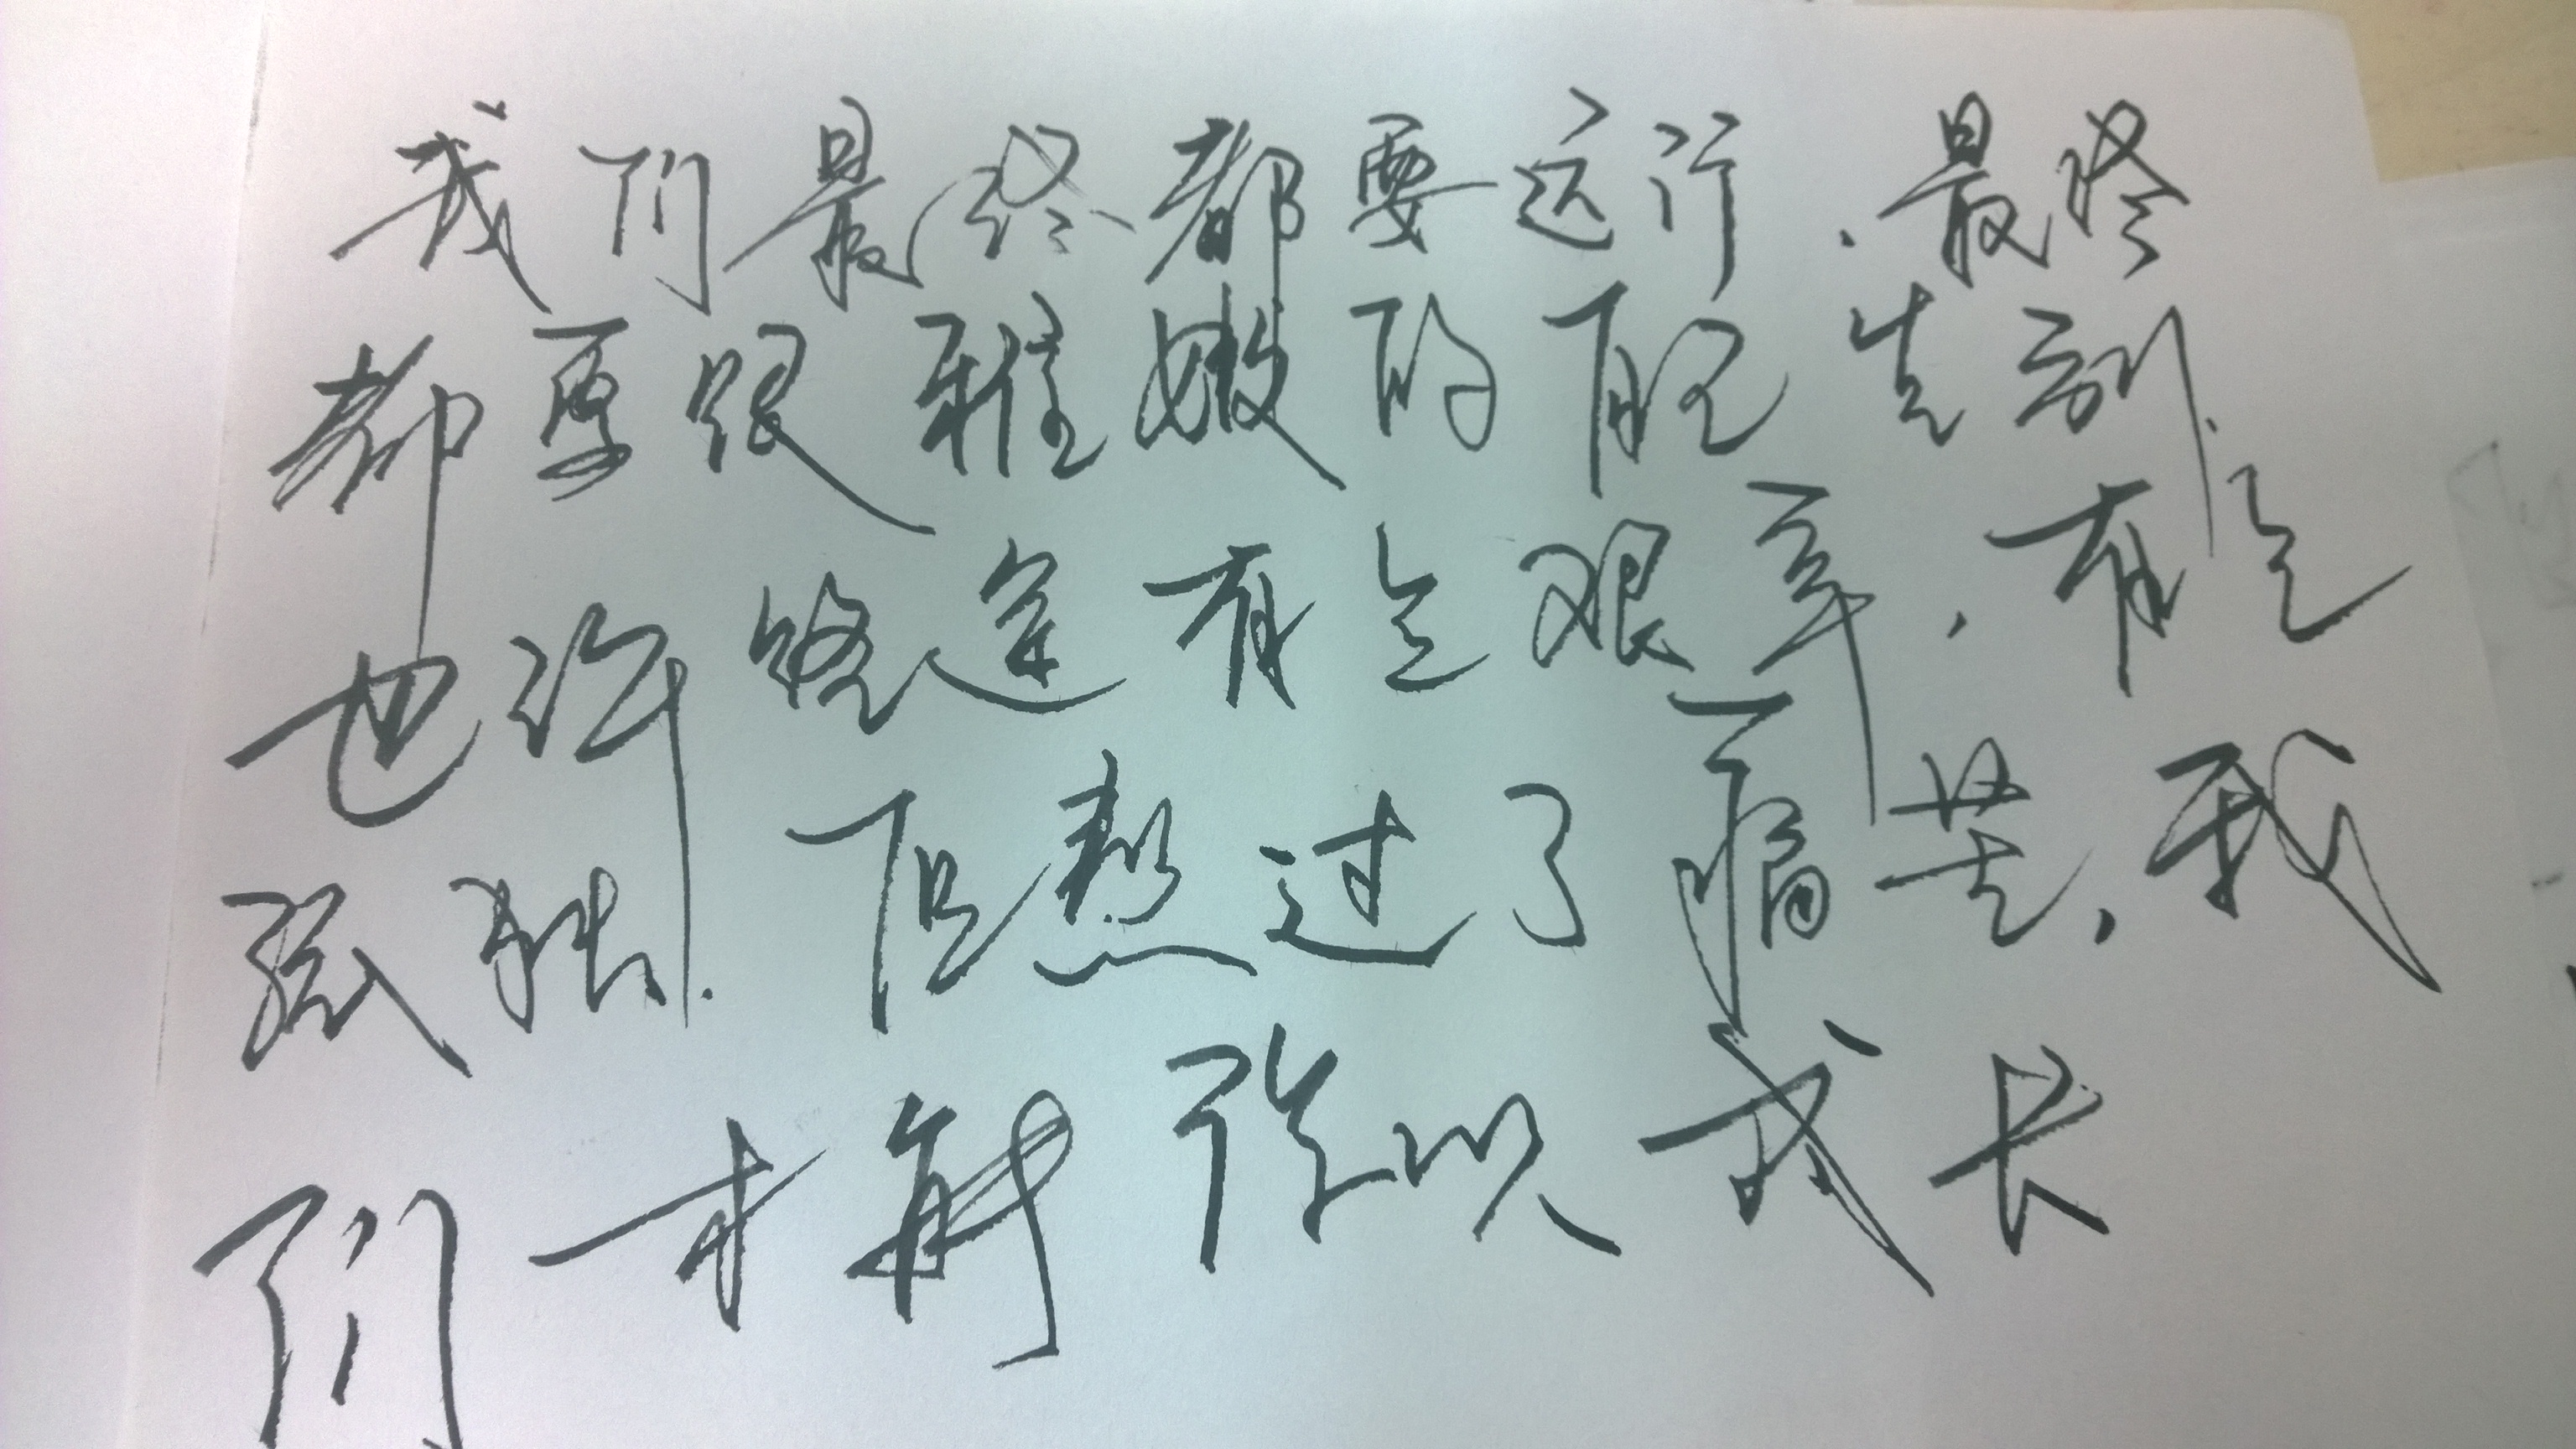 我们最终都要远行，最终
都要跟稚嫩的自己告别
也许路途有点艰辛，有点
孤独，但熬过了痛苦，我
们才能得以成长